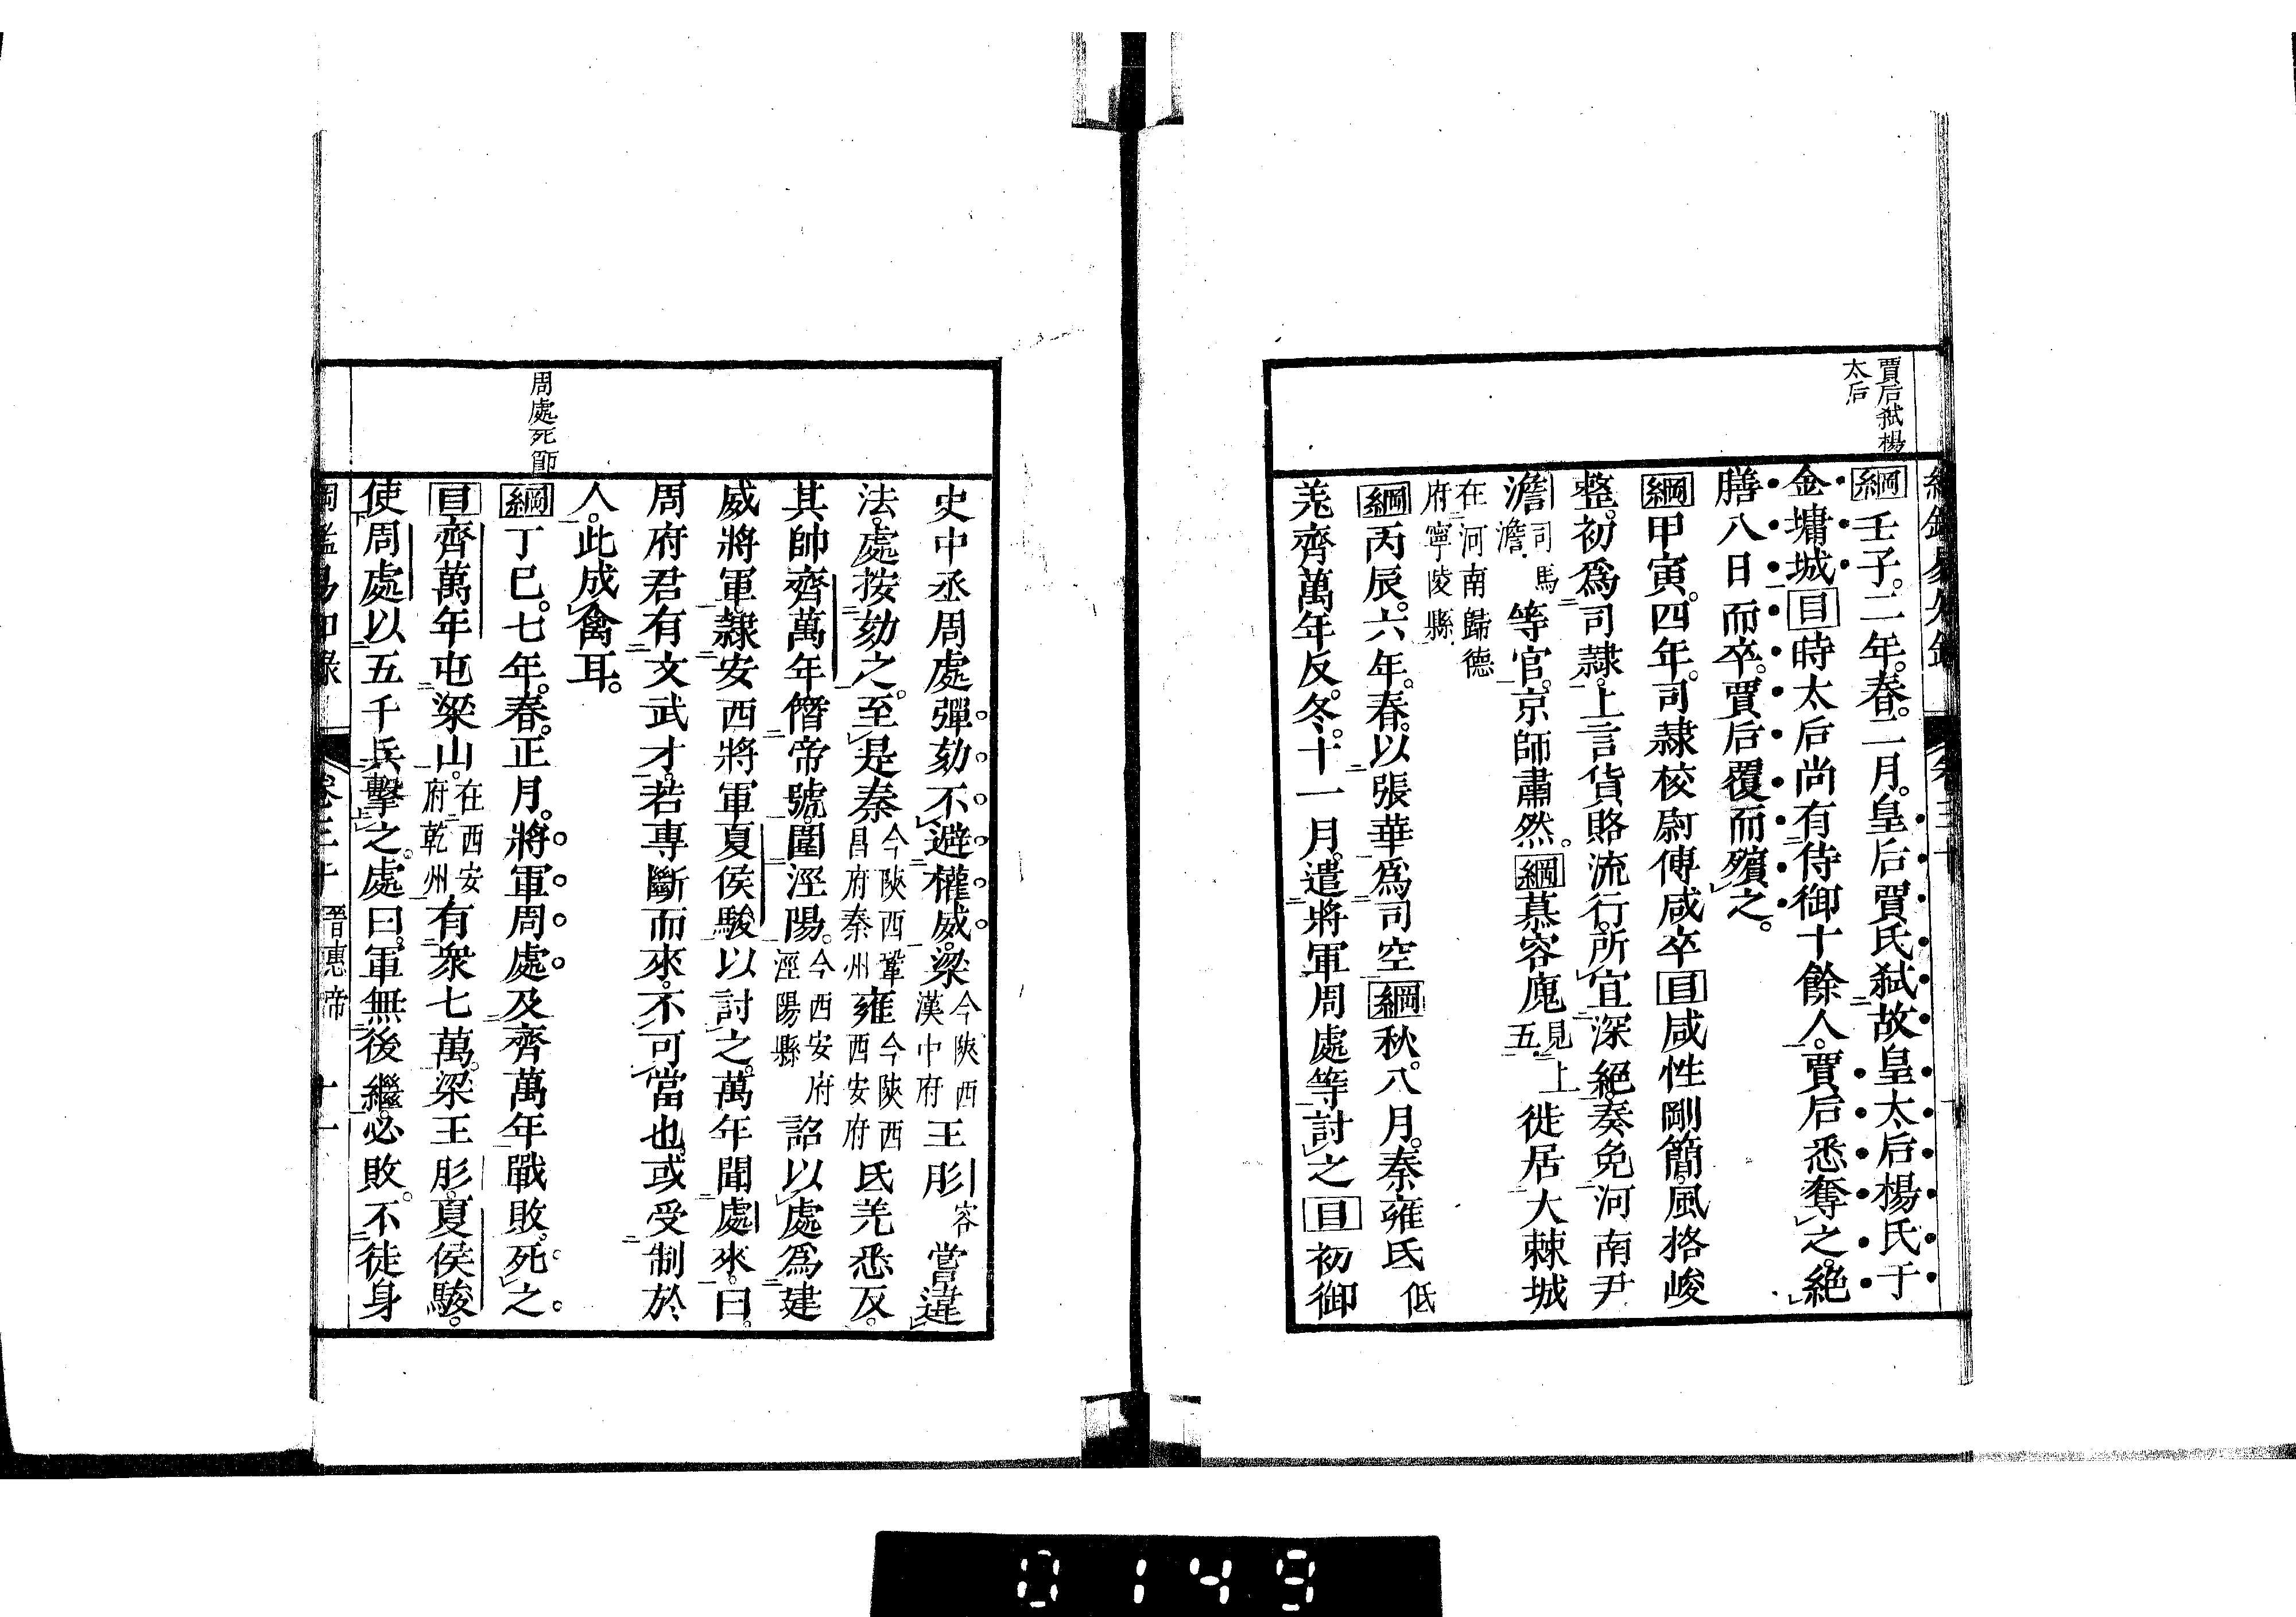 賈后弑楊
太后
綱壬子。二年。春。二月。皇后賈氏弑故皇太后楊氏于
金墉城目時太后尚有侍御十餘人。賈后悉奪之。絕
膳八日而卒。賈后覆而殯之。
綱甲寅。四年。司隸校尉傅咸卒目咸性剛簡。風格峻
整。初爲司隸。上言貨賂流行。所宜深絕。奏免河南尹
澹司馬澹等官。京師肅然。綱慕容廆見上五徙居大棘城
在河南歸德府寧陵縣
綱丙辰。六年。春。以張華爲司空綱秋。八月。秦雍氐低
羌齊萬年反。冬。十一月。遣將軍周處等討之目初御
周處死節
史中丞周處彈劾不避權威。梁今陝西漢中府王肜容嘗違
法。處按劾之。至是秦今陝西鞏昌府秦州雍今陝西西安府氐羌悉反。
其帥齊萬年僭帝號。圍涇陽。今西安府涇陽縣詔以處爲建
威將軍隸安西將軍夏侯駿以討之。萬年聞處來。曰。
周府君有文武才。若專斷而來。不可當也。或受制於
人。此成禽耳。
綱丁巳。七年。春。正月。將軍周處及齊萬年戰敗。死之。
目齊萬年屯梁山。在西安府乾州有衆七萬。梁王肜。夏侯駿。
使周處以五千兵擊之。處曰。軍無後繼。必敗。不徒身
晉惠帝
0149